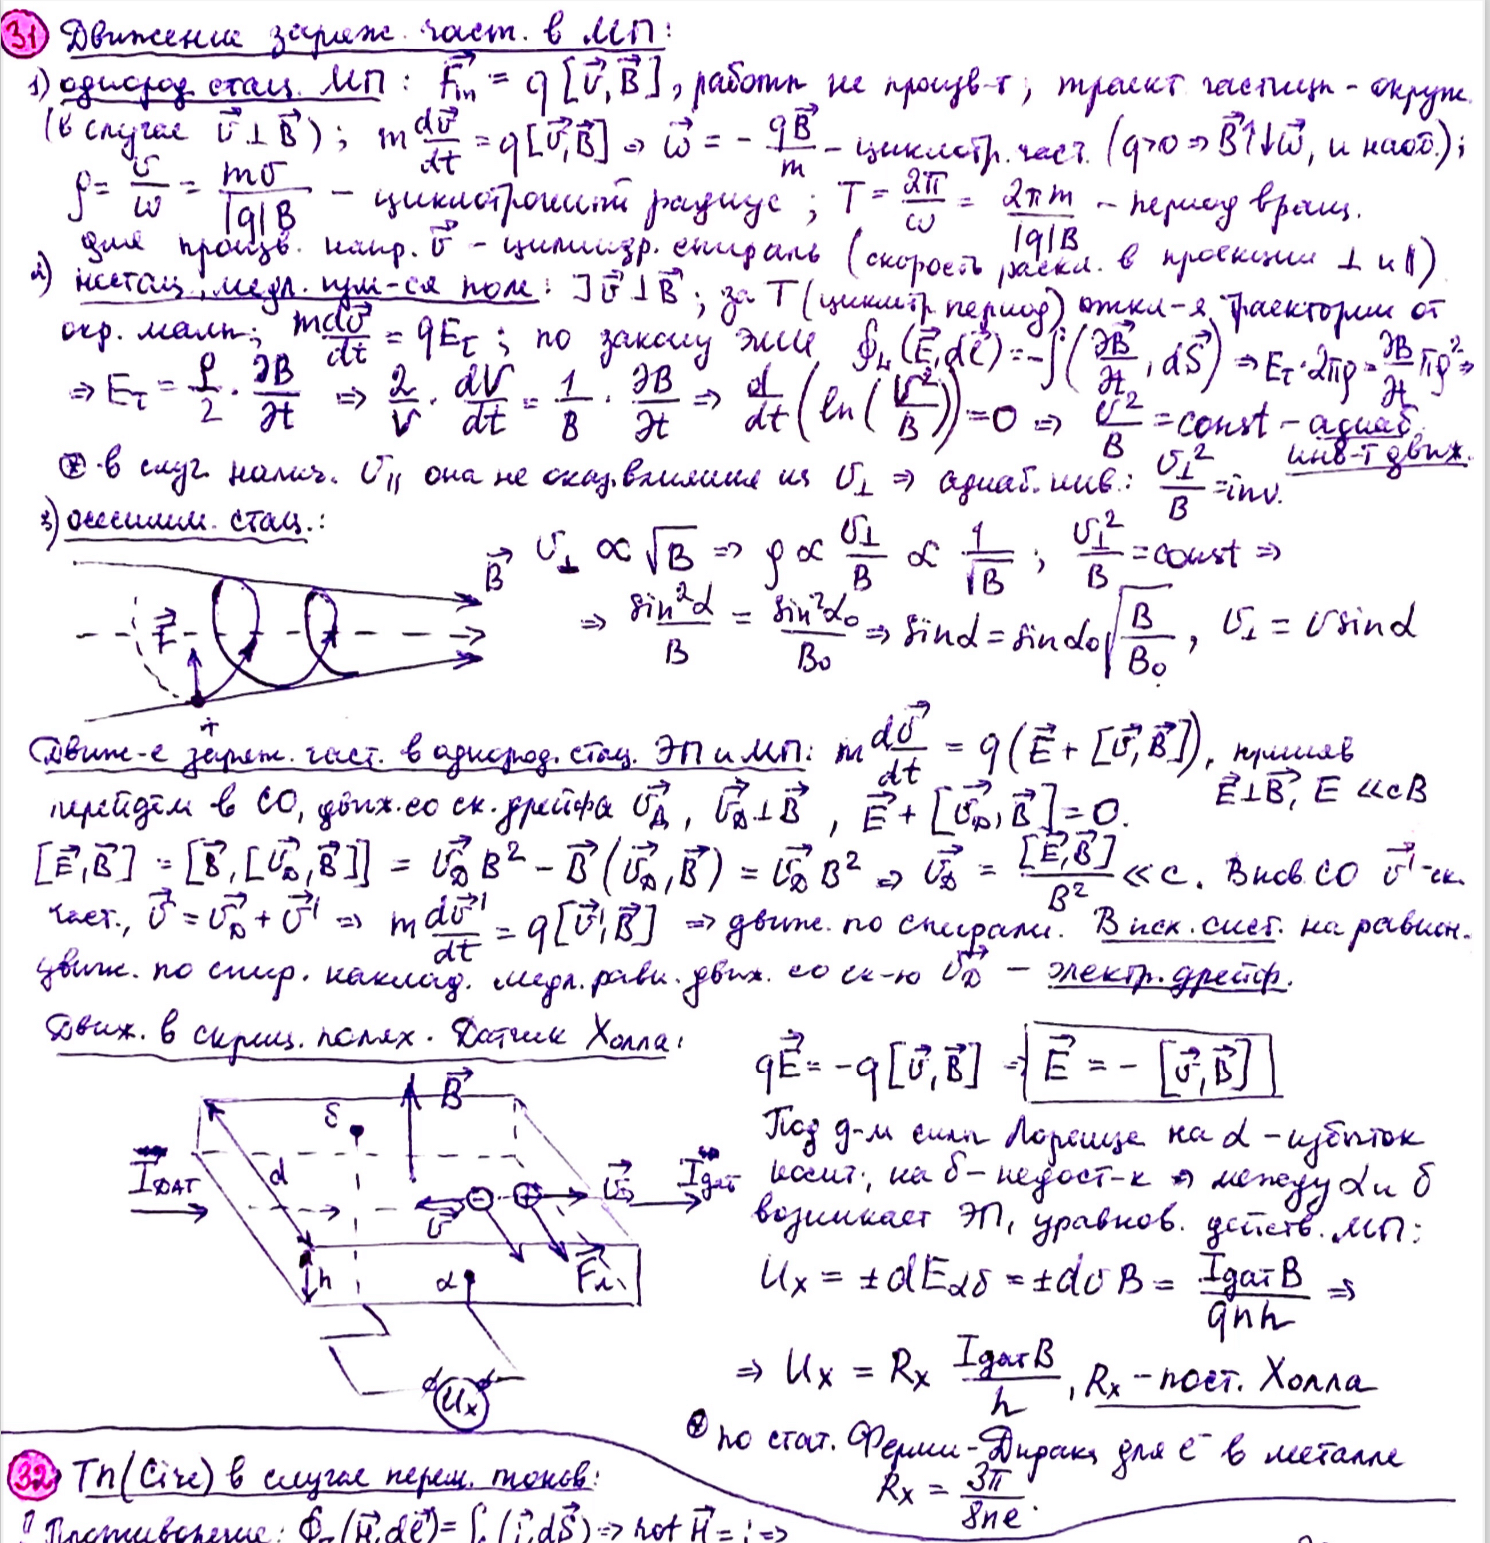 31 Движение заряж. част. в МП:
1) однород. стац. МП: F⃗_m = q[v⃗,B⃗], работы не произв-т; траект. частицы - окруж.
(в случае v⃗⊥B⃗); m dv⃗/dt = q[v⃗,B⃗] ⇒ ω⃗ = - qB⃗/m - циклотр. част. (q>0 ⇒ B⃗↑↓ω⃗, и наоб.);
ρ = v/ω = mv/|q|B - циклотронный радиус; T = 2π/ω = 2πm/|q|B - период вращ.
для произв. напр. v⃗ - цилиндр. спираль (скорость раскл. в проекции ⊥ и ∥)
2) нестац. медл. изм-ся поле: ]v⃗⊥B⃗; за T (циклотр. период) откл-я траектории от
окр. малы; m dv/dt = qE_τ; по закону ЭМИ ∮_L(E⃗,dℓ⃗) = -∫(∂B⃗/∂t, dS⃗) ⇒ E_τ·2πρ = ∂B/∂t πρ² ⇒
⇒ E_τ = ρ/2 · ∂B/∂t ⇒ 2/v · dv/dt = 1/B · ∂B/∂t ⇒ d/dt(ln(v²/B)) = 0 ⇒ v²/B = const - адиаб.
инв-т движ.
⊛ в случ. налич. v∥ она не оказ. влияния на v⊥ ⇒ адиаб. инв.: v⊥²/B = inv.
3) осесимм. стац.:
B⃗
v⊥ ∝ √B ⇒ ρ ∝ v⊥/B ∝ 1/√B; v⊥²/B = const ⇒
⇒ sin²α/B = sin²α₀/B₀ ⇒ sinα = sinα₀√(B/B₀), v⊥ = v sinα
F⃗
+
Движ-е заряж. част. в однород. стац. ЭП и МП: m dv⃗/dt = q(E⃗ + [v⃗,B⃗]), приняв
E⃗⊥B⃗, E ≪ cB
перейдём в СО, движ. со ск. дрейфа v⃗_д, v⃗_д⊥B⃗, E⃗ + [v⃗_д,B⃗] = 0.
[E⃗,B⃗] = [B⃗,[v⃗_д,B⃗]] = v⃗_д B² - B⃗(v⃗_д,B⃗) = v⃗_д B² ⇒ v⃗_д = [E⃗,B⃗]/B² ≪ c. В нов. СО v⃗' - ск.
част., v⃗ = v⃗_д + v⃗' ⇒ m dv⃗'/dt = q[v⃗',B⃗] ⇒ движ. по спирали. В исх. сист. на равном.
движ. по спир. наклад. медл. равн. движ. со ск-ю v⃗_д - электр. дрейф.
Движ. в скрещ. полях. Датчик Холла:
qE⃗ = -q[v⃗,B⃗] ⇒ E⃗ = -[v⃗,B⃗]
Под д-м силы Лоренца на α - избыток
носит., на δ - недост-к ⇒ между α и δ
возникает ЭП, уравнов. действ. МП:
U_x = ±dE_αδ = ±dvB = I_дат B/qnh ⇒
⇒ U_x = R_x I_дат B/h, R_x - пост. Холла
⊛ по стат. Ферми-Дирака для e⁻ в металле
R_x = 3π/8ne.
δ
B⃗
I⃗_ДАТ
d
v⃗
v⃗
I_дат
h
α
F⃗_л
U_x
32 Тп (Circ) в случае перем. токов:
! Противоречие: ∮(H⃗,dℓ⃗) = ∫(j⃗,dS⃗) ⇒ rot H⃗ = j ⇒